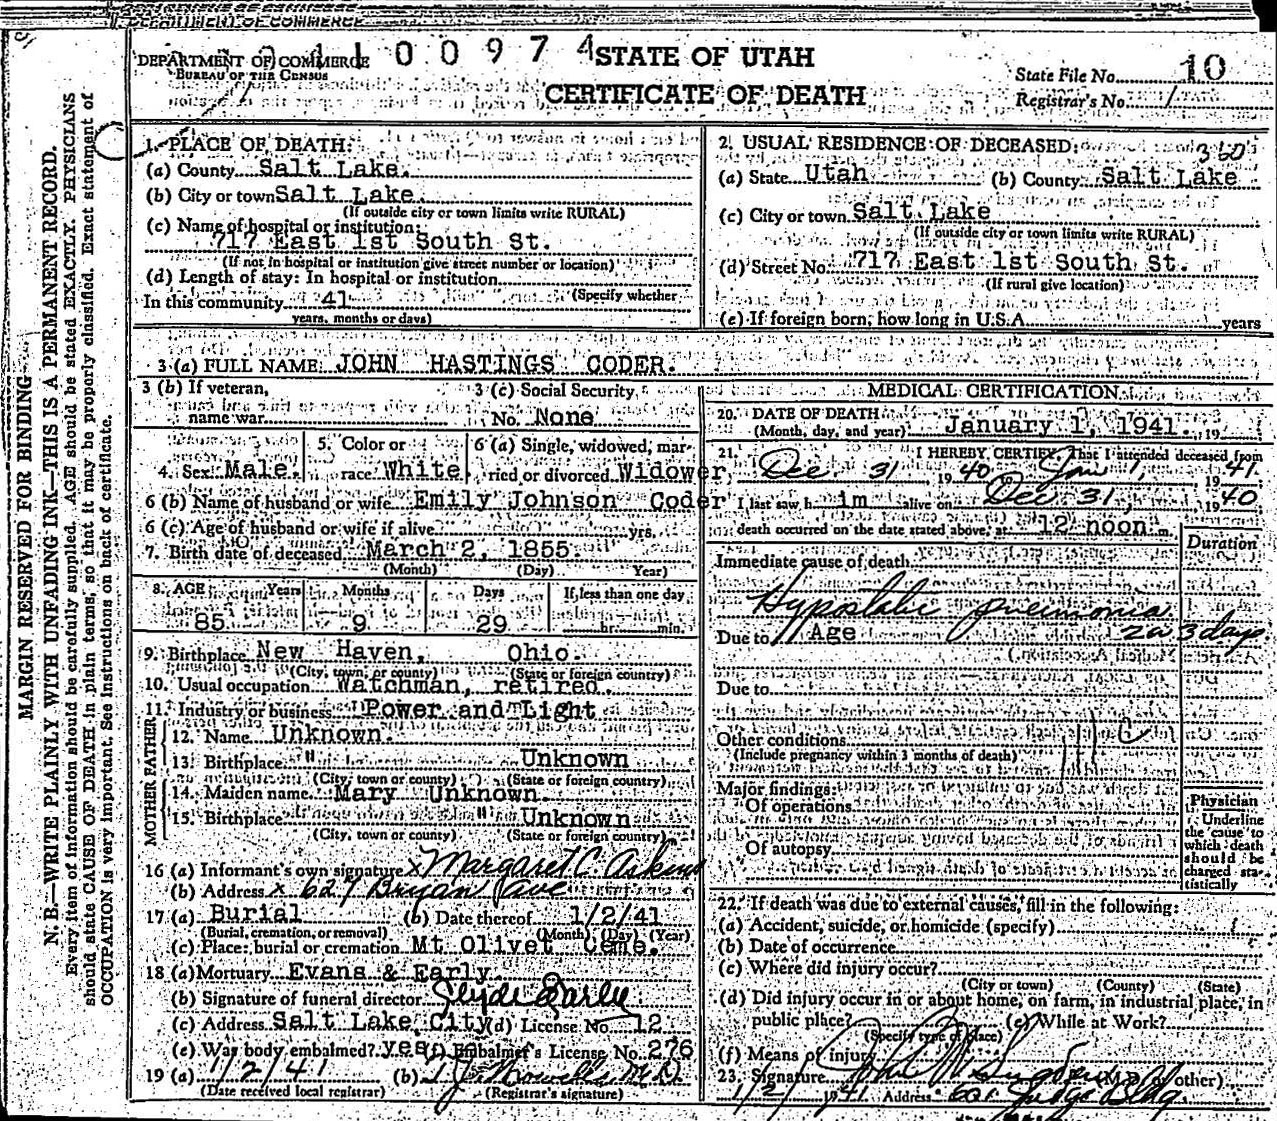 DEPARTMENT OF COMMERCE
DEPARTMENT OF COMMERCE 1 0 0 9 7 4 STATE OF UTAH
BUREAU OF THE CENSUS
CERTIFICATE OF DEATH
State File No. 10
Registrar's No.
MARGIN RESERVED FOR BINDING
N. B.—WRITE PLAINLY WITH UNFADING INK—THIS IS A PERMANENT RECORD.
Every item of information should be carefully supplied. AGE should be stated EXACTLY. PHYSICIANS
should state CAUSE OF DEATH in plain terms, so that it may be properly classified. Exact statement of
OCCUPATION is very important. See instructions on back of certificate.
1. PLACE OF DEATH:
(a) County Salt Lake.
(b) City or town Salt Lake.
(If outside city or town limits write RURAL)
(c) Name of hospital or institution:
717 East 1st South St.
(If not in hospital or institution give street number or location)
(d) Length of stay: In hospital or institution
(Specify whether
In this community 41
years, months or days)
2. USUAL RESIDENCE OF DECEASED:
360
(a) State Utah (b) County Salt Lake
(c) City or town Salt Lake
(If outside city or town limits write RURAL)
(d) Street No. 717 East 1st South St.
(If rural give location)
(e) If foreign born, how long in U.S.A. years
3 (a) FULL NAME: JOHN HASTINGS CODER.
3 (b) If veteran,
name war
3 (c) Social Security
No. None
4. Sex Male.
5. Color or
race White
6 (a) Single, widowed, mar-
ried or divorced Widower
6 (b) Name of husband or wife Emily Johnson Coder
6 (c) Age of husband or wife if alive yrs.
7. Birth date of deceased March 2, 1855.
(Month) (Day) Year)
8. AGE Years Months Days If less than one day
85 9 29 hr. min.
9. Birthplace New Haven, Ohio.
(City, town, or county) (State or foreign country)
10. Usual occupation Watchman, retired.
11. Industry or business Power and Light
FATHER
12. Name Unknown.
13. Birthplace " Unknown
(City, town or county) (State or foreign country)
MOTHER
14. Maiden name Mary Unknown.
15. Birthplace " Unknown
(City, town or county) (State or foreign country)
16 (a) Informant's own signature x Margaret C. Askins
(b) Address x 627 Bryan ave
17. (a) Burial (b) Date thereof 1/2/41
(Burial, cremation, or removal) (Month) (Day) (Year)
(c) Place: burial or cremation Mt Olivet Ceme.
18 (a) Mortuary Evans & Early
(b) Signature of funeral director Clyde Early
(c) Address Salt Lake City (d) License No. 12
(e) Was body embalmed? yes (f) Embalmer's License No. 276
19 (a) 1/2/41 (b) M.D.
(Date received local registrar) (Registrar's signature)
MEDICAL CERTIFICATION
20. DATE OF DEATH
(Month, day, and year) January 1, 1941. 19
21. I HEREBY CERTIFY, That I attended deceased from
Dec 31 1940 to Jan 1, 1941.
I last saw him alive on Dec 31, 1940
death occurred on the date stated above, at 12 noon m.
Duration
Immediate cause of death
Hypostatic pneumonia
Due to Age 2 or 3 days
Due to
Other conditions
(Include pregnancy within 3 months of death)
Major findings:
Of operations
Of autopsy
Physician
Underline
the cause to
which death
should be
charged sta-
tistically
22. If death was due to external causes, fill in the following:
(a) Accident, suicide, or homicide (specify)
(b) Date of occurrence
(c) Where did injury occur?
(City or town) (County) (State)
(d) Did injury occur in or about home, on farm, in industrial place, in
public place? (e) While at Work?
(Specify type of place)
(f) Means of injury
23. Signature John (M.D. or other)
1/2/1941 Address Judge Bldg.